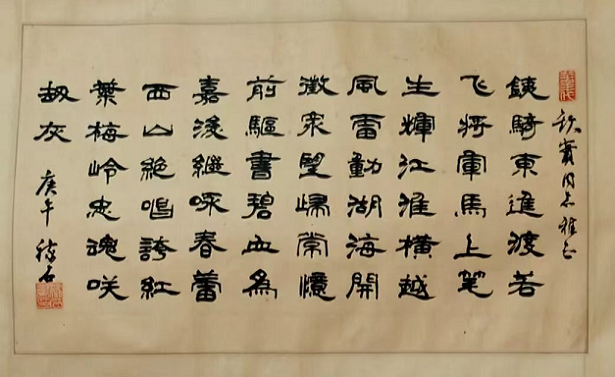 同志雅正
銕騎東進渡若
飞将軍馬上笔
生輝江淮橫越
風雷動湖海開
徵衆望歸常憶
前驅書碧血為
嘉後繼咏春蕾
西山絕唱誇紅
葉梅岭忠魂咲
劫灰
庚午 石